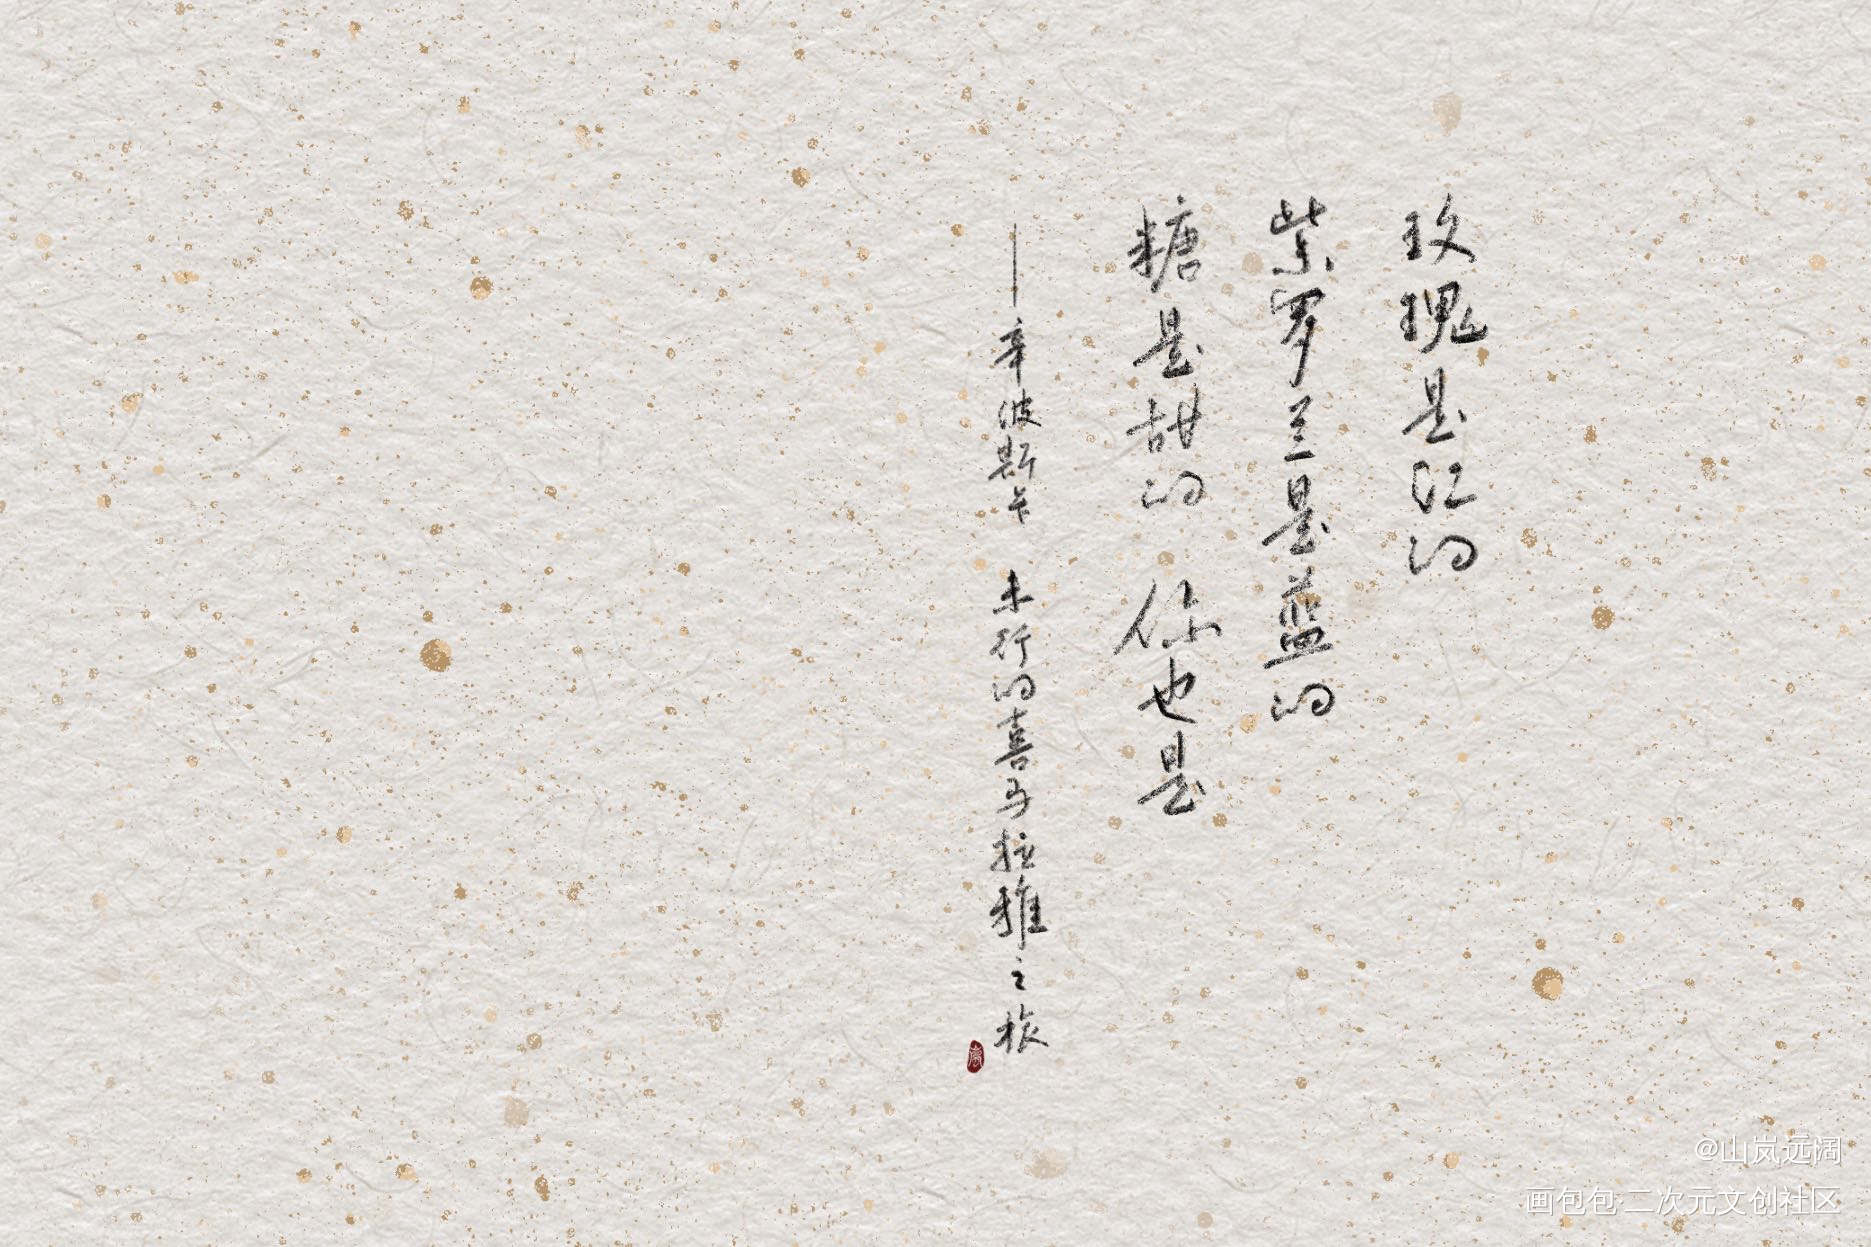 玫瑰是红的
紫罗兰是蓝的
糖是甜的 你也是
——辛波斯卡 未行的喜马拉雅之旅
@山岚远阔
画包包·二次元文创社区